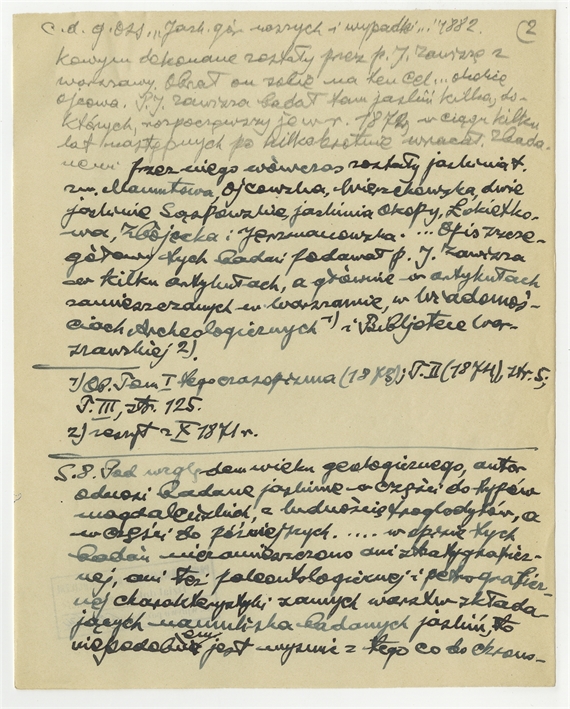 c. d. g. Oss. "Jask. gór naszych i wypadki..." 1882. (2
kowym dokonane zostały przez p. J. Zawiszę z
Warszawy. Obrał on sobie na ten cel... okolicę
Ojcowa. P. J. Zawisza badał tam jaskiń kilka, do
których, rozpocząwszy je w r. 1872, w ciągu kilku
lat następnych po kilkakrotnie wracał. Zbada-
nemi przez niego wówczas zostały jaskinia t.
zw. Mamutowa, Ojcowska, Wierzchowska, dwie
jaskinie Sąspowskie, jaskinia Okopy, Łokietko-
wa, Zbójecka i Jerzmanowska. ... Opis szcze-
gółowy tych badań podawał p. J. Zawisza
w kilku artykułach, a głównie w artykułach
zamieszczanych w Warszawie, w Wiadomoś-
ciach Archeologicznych 1) i Bibljotece War-
szawskiej 2).
1) Ob. Tom I tego czasopisma (1873); T. II (1874), str. 5;
T. III, str. 125.
2) zeszyt z X 1871 r.
S. 8. Pod wzglę-dem wieku geologicznego, autor
odnosi badane jaskinie w części do typów
magdaleńskich, z ludnością troglodytów, a
w części do późniejszych. .... w opisie tych
badań nie zamieszczono ani stratygraficz-
nej, ani też paleontologicznej i petrograficz-
nej charakterystyki samych warstw składa-
jących namuliska badanych jaskiń, to
niepodobieństwem jest wysnuć z tego co do chrono-